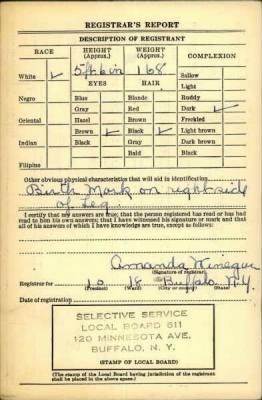 REGISTRAR'S REPORT
DESCRIPTION OF REGISTRANT
RACE HEIGHT (Approx.) WEIGHT (Approx.) COMPLEXION
White ✓ 5ft 6 in 168 Sallow
EYES HAIR Light
Negro Blue Blonde Ruddy
Gray Red Dark ✓
Oriental Hazel Brown Freckled
Brown ✓ Black ✓ Light brown
Indian Black Gray Dark brown
Bald Black
Filipino
Other obvious physical characteristic that will aid in identification
Birth Mark on right side
of Leg
I certify that my answers are true; that the person registered has read or has had
read to him his own answers; that I have witnessed his signature or mark and that
all of his answers of which I have knowledge are true, except as follows:
Amanda
(Signature of registrar)
Registrar for 10 18 Buffalo N.Y.
(Precinct) (Ward) (City or county) (State)
Date of registration
SELECTIVE SERVICE
LOCAL BOARD 611
120 MINNESOTA AVE.
BUFFALO, N. Y.
(STAMP OF LOCAL BOARD)
(The stamp of the Local Board having jurisdiction of the registrant
shall be placed in the above space.)